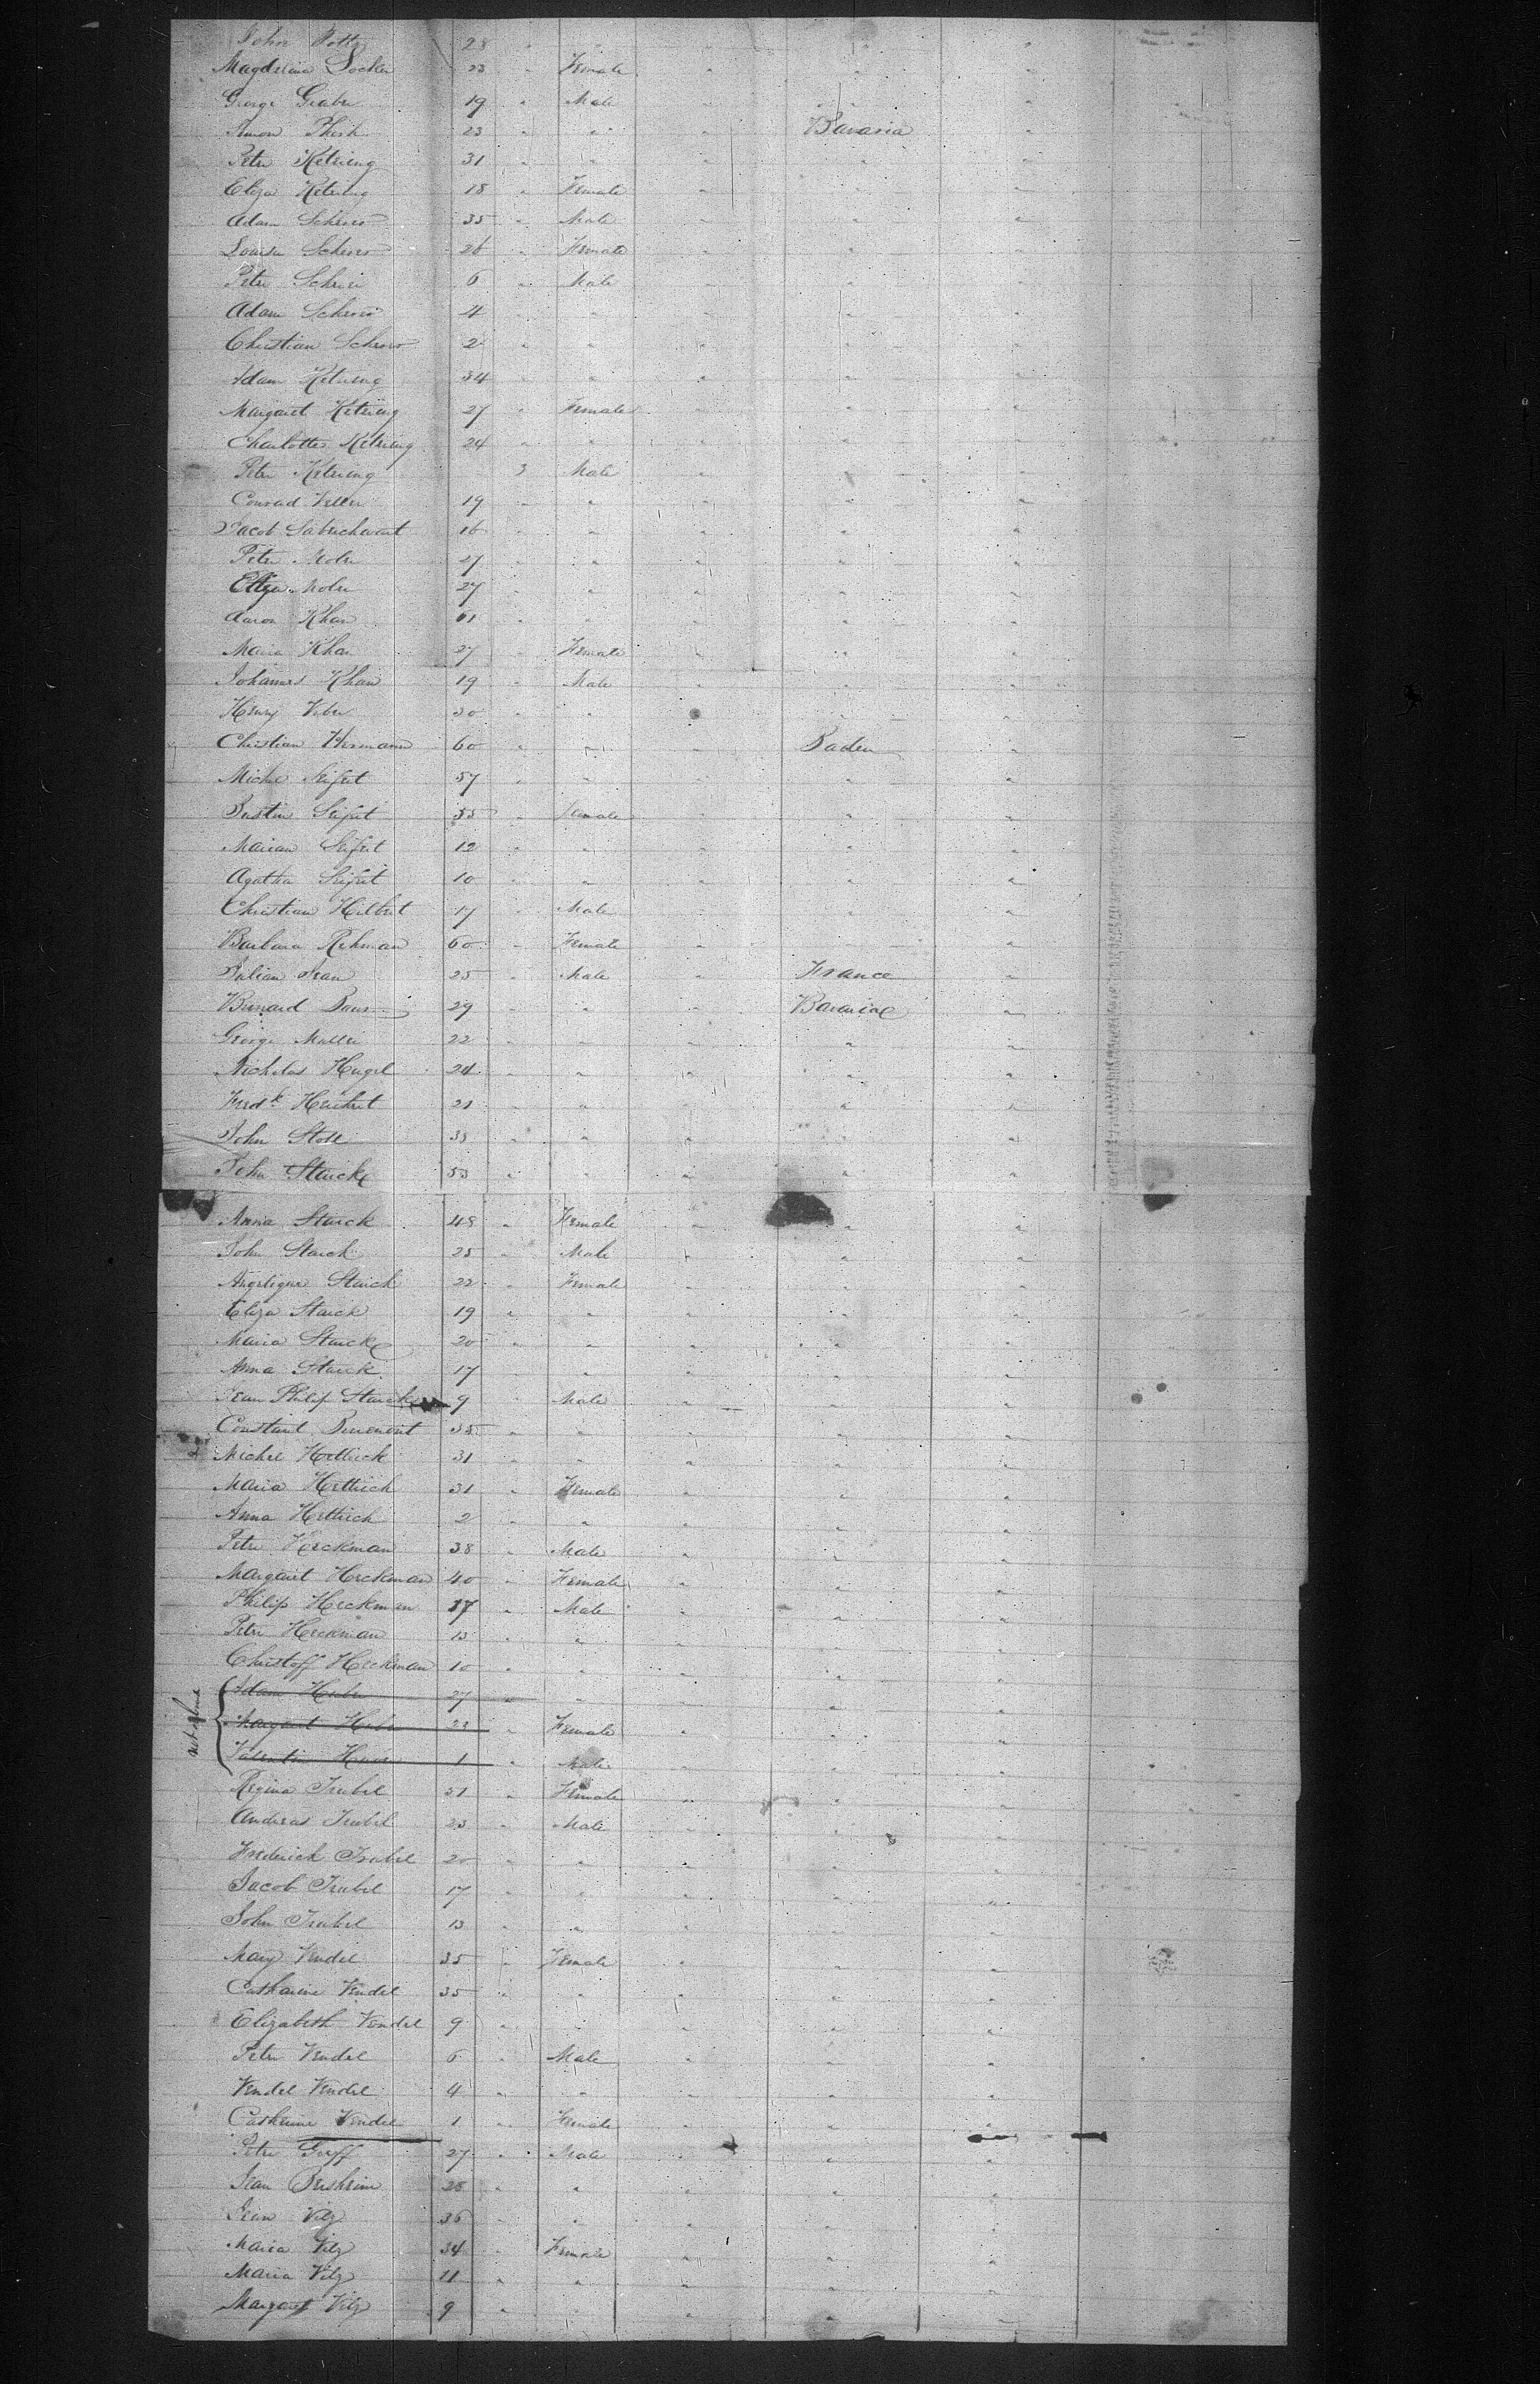 John Potts 28 " " " " "
Magdelina Locker 23 " Female " " "
George Graber 19 " Male " " "
Simon Phish 23 " " " Bavaria "
Peter Ketrieng 31 " " " " "
Eliza Ketrieng 18 " Female " " "
Adam Scherer 35 " Male " " "
Louisa Scherer 26 " Female " " "
Peter Scherer 6 " Male " " "
Adam Scherer 4 " " " " "
Christian Scherer 2 " " " " "
Adam Ketrieng 34 " " " " "
Margaret Ketrieng 27 " Female " " "
Charlotte Ketrieng 24 " " " " "
Peter Ketrieng 3 Male " " "
Conrad Veller 19 " " " " "
Jacob 16 " " " " "
Peter Moler 27 " " " " "
Eliza Moler 27 " " " " "
Aaron Khan 61 " " " " "
Maria Khan 27 " Female " " "
Johannes Khan 19 " Male " " "
Henry Veber 30 " " " " "
Christian Hermann 60 " " " Baden "
Michel Seifert 57 " " " " "
Justin Seifert 55 " Female " " "
Marian Seifert 12 " " " " "
Agatha Seifert 10 " " " " "
Christian Hilbert 17 " Male " " "
Barbara Rehman 60 " Female " " "
Julian Jean 25 " Male " France "
Bernard Baus 29 " " " Bavaria "
George Muller 22 " " " " "
Nicholas Hugel 24 " " " " "
Fredk Heichert 21 " " " " "
John Stoll 38 " " " " "
John Starck 53 " " " " "
Anna Starck 48 " Female " " "
John Starck 25 " Male " " "
Angelique Starck 22 " Female " " "
Eliza Starck 19 " " " " "
Maria Starck 20 " " " " "
Anna Starck 17 " " " " "
Jean Philip Starck 9 " Male " " "
Constant 35 " " " " "
Michel Hettrick 31 " " " " "
Maria Hettrich 31 " Female " " "
Anna Hettrich 2 " " " " "
Peter Heckman 38 " Male " " "
Margaret Heckman 40 " Female " " "
Philip Heckman 17 " Male " " "
Peter Heckman 13 " " " " "
Christoff Heckman 10 " " " " "
Adam Huber 27 " " " " "
Margaret Huber 23 " Female " " "
Valentin Huber 1 " Male " " "
Regina Trubel 51 " Female " " "
Andreas Trubel 23 " Male " " "
Frederick Trubel 20 " " " " "
Jacob Trubel 17 " " " " "
John Trubel 13 " " " " "
Mary Vendel 35 " Female " " "
Catharine Vendel 35 " " " " "
Elizabeth Vendel 9 " " " " "
Peter Vendel 6 " Male " " "
Vendel Vendel 4 " " " " "
Catherine Vendel 1 " Female " " "
Peter Goeff 27 " Male " " "
Jean 28 " " " " "
Jean Vilz 36 " " " " "
Maria Vilz 34 " Female " " "
Maria Vilz 11 " " " " "
Margaret Vilz 9 " " " " "